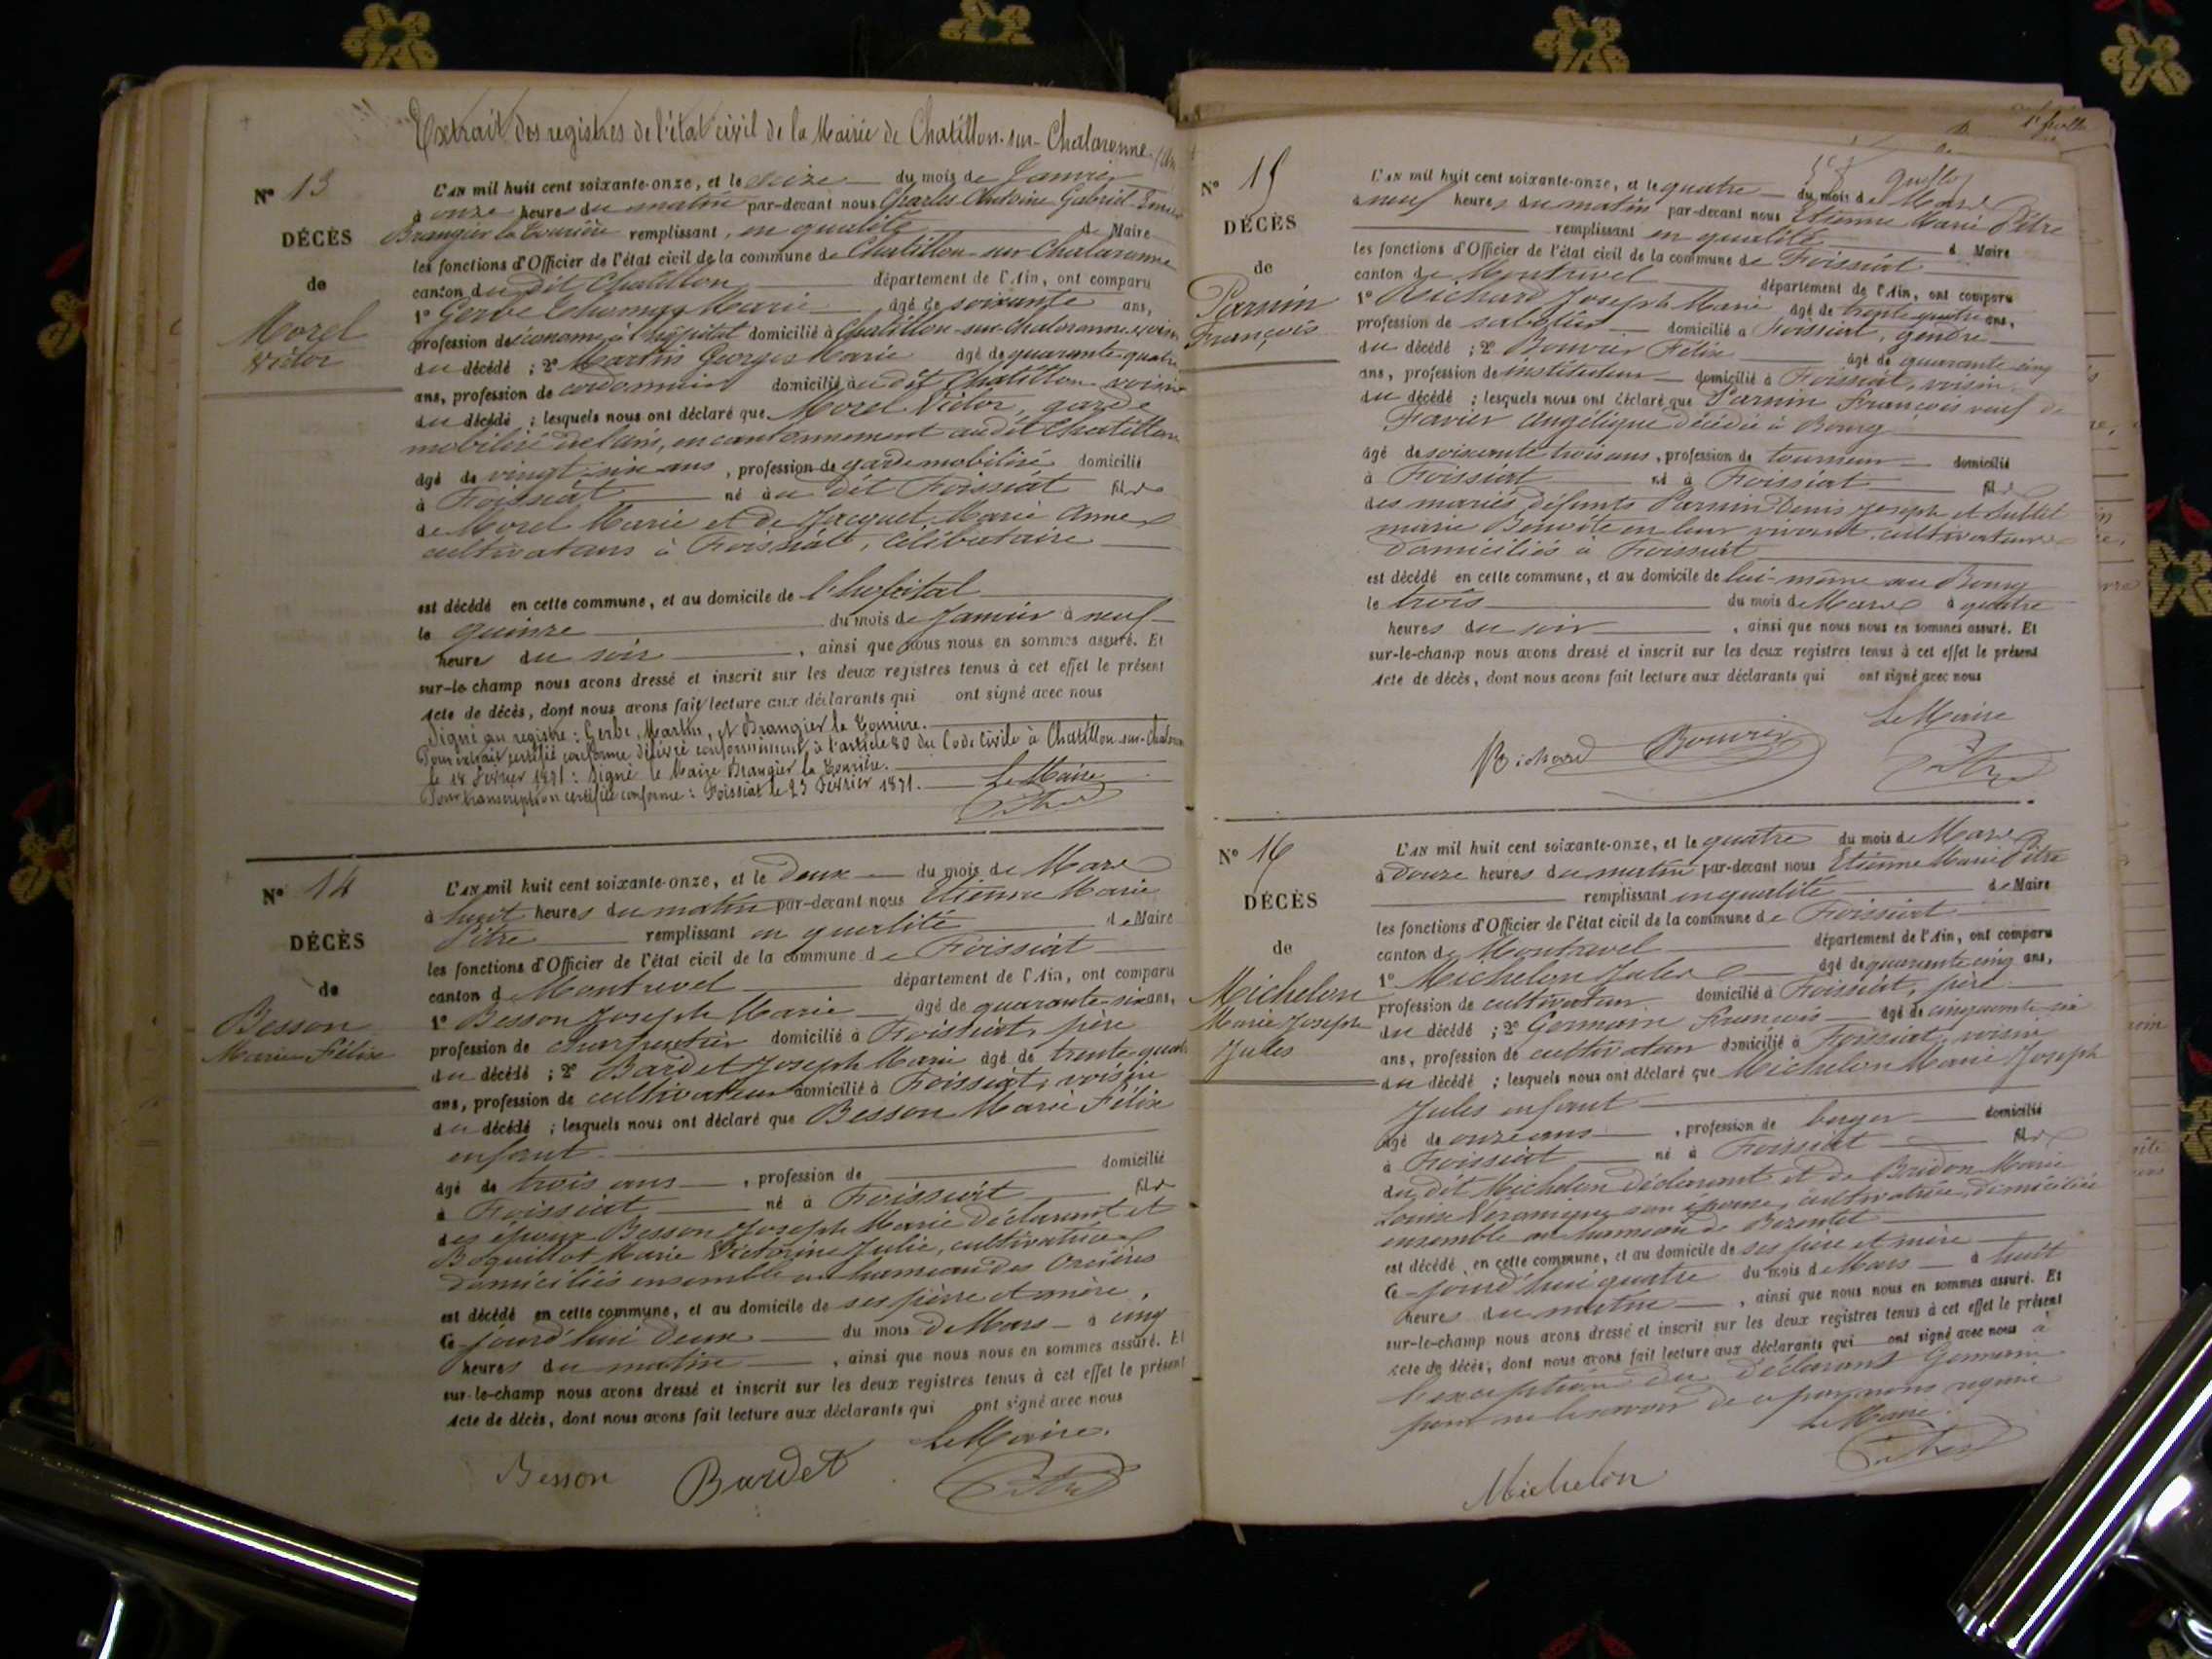 Extrait des registres de l'état civil de la Mairie de Chatillon-sur-Chalaronne
N° 13
DÉCÈS
de
Morel
Victor
L'AN mil huit cent soixante-onze, et le seize du mois de Janvier
à onze heures du matin par-devant nous Charles Antoine Gabriel
Brangier la Tourière remplissant, en qualité de Maire
les fonctions d'Officier de l'état civil de la commune de Chatillon-sur-Chalaronne
canton du dit Chatillon département de l'Ain, ont comparu
1° Gerbe Thomas Marie âgé de soixante ans,
profession d'économe à l'hôpital domicilié à Chatillon-sur-Chalaronne voisin
du décédé ; 2° Martin Georges Marie âgé de quarante-quatre
ans, profession de cordonnier domicilié au dit Chatillon voisin
du décédé ; lesquels nous ont déclaré que Morel Victor, garde
mobilisé de l'ain, en cantonnement audit Chatillon
âgé de vingt-six ans, profession de garde mobilisé domicilié
à Foissiat né au dit Foissiat fils
de Morel Marie et de Jacquet Marie Anne
cultivateurs à Foissiat, célibataire
est décédé en cette commune, et au domicile de l'hopital
le quinze du mois de Janvier à neuf
heure du soir, ainsi que nous nous en sommes assuré. Et
sur-le champ nous avons dressé et inscrit sur les deux registres tenus à cet effet le présent
Acte de décès, dont nous avons fait lecture aux déclarants qui ont signé avec nous
Signé au registre : Gerbe, Martin, et Brangier la Tourière.
Pour extrait certifié conforme délivré conformément à l'article 80 du Code Civile à Chatillon-sur-Chalaronne
le 18 Février 1871 : Signé le Maire Brangier la Tourière.
Pour transcription certifiée conforme : Foissiat le 23 Février 1871. Le Maire
Pitre
N° 14
DÉCÈS
de
Besson
Marie Félix
L'AN mil huit cent soixante-onze, et le Deux du mois de Mars
à huit heures du matin par-devant nous Etienne Marie
Pitre remplissant en qualité de Maire
les fonctions d'Officier de l'état civil de la commune de Foissiat
canton de Montrevel département de l'Ain, ont comparu
1° Besson Joseph Marie âgé de quarante-six ans,
profession de charpentier domicilié à Foissiat, père
du décédé ; 2° Bardet Joseph Marie âgé de trente-quatre
ans, profession de cultivateur domicilié à Foissiat, voisin
du décédé ; lesquels nous ont déclaré que Besson Marie Félix
enfant
âgé de trois ans, profession de domicilié
à Foissiat né à Foissiat fils
des époux Besson Joseph Marie Déclarant et
Boquillot Marie Victorine Julie, cultivatrice
domiciliés ensemble au hameau des Orcières
est décédé en cette commune, et au domicile de ses père et mère,
Ce jourd'hui deux du mois de Mars à cinq
heures du matin, ainsi que nous nous en sommes assuré. Et
sur-le-champ nous avons dressé et inscrit sur les deux registres tenus à cet effet le présent
Acte de décès, dont nous avons fait lecture aux déclarants qui ont signé avec nous
Le Maire.
Besson Bardet Pitre
N° 15
DÉCÈS
de
Parnin
François
L'AN mil huit cent soixante-onze, et le quatre du mois de Mars
à neuf heures du matin par-devant nous Etienne Marie Pitre
remplissant en qualité de Maire
les fonctions d'Officier de l'état civil de la commune de Foissiat
canton de Montrevel département de l'Ain, ont comparu
1° Richard Joseph Marie âgé de trente quatre ans,
profession de sabotier domicilié à Foissiat, gendre
du décédé ; 2° Bouvier Félix âgé de quarante cinq
ans, profession de instituteur domicilié à Foissiat, voisin
du décédé ; lesquels nous ont déclaré que Parnin François veuf de
Favier Angélique décédée à Bourg
âgé de soixante trois ans, profession de tourneur domicilié
à Foissiat né à Foissiat fils
des mariés défunts Parnin Denis Joseph et
marie Benoite en leur vivant cultivateurs
domiciliés à Foissiat
est décédé en cette commune, et au domicile de lui-même au Bourg
le trois du mois de Mars à quatre
heures du soir, ainsi que nous nous en sommes assuré. Et
sur-le-champ nous avons dressé et inscrit sur les deux registres tenus à cet effet le présent
Acte de décès, dont nous avons fait lecture aux déclarants qui ont signé avec nous
Le Maire
Richard Bouvier Pitre
N° 16
DÉCÈS
de
Michelon
Marie Joseph
Jules
L'AN mil huit cent soixante-onze, et le quatre du mois de Mars
à Douze heures du matin par-devant nous Etienne Marie Pitre
remplissant en qualité de Maire
les fonctions d'Officier de l'état civil de la commune de Foissiat
canton de Montrevel département de l'Ain, ont comparu
1° Michelon Jules âgé de quarante cinq ans,
profession de cultivateur domicilié à Foissiat, père
du décédé ; 2° Germain François âgé de cinquante six
ans, profession de cultivateur domicilié à Foissiat, voisin
du décédé ; lesquels nous ont déclaré que Michelon Marie Joseph
Jules enfant
âgé de onze ans, profession de berger domicilié
à Foissiat né à Foissiat fils
du dit Michelon Déclarant et de Bridon Marie
Louise Véronique son épouse, cultivatrice, domiciliés
ensemble au hameau de
est décédé en cette commune, et au domicile de ses père et mère
Ce jourd'hui quatre du mois de Mars à huit
heures du matin, ainsi que nous nous en sommes assuré. Et
sur-le-champ nous avons dressé et inscrit sur les deux registres tenus à cet effet le présent
Acte de décès, dont nous avons fait lecture aux déclarants qui ont signé avec nous à
l'exception du Déclarant Germain
pour ne le savoir de ce par nous requis
Le Maire.
Michelon Pitre